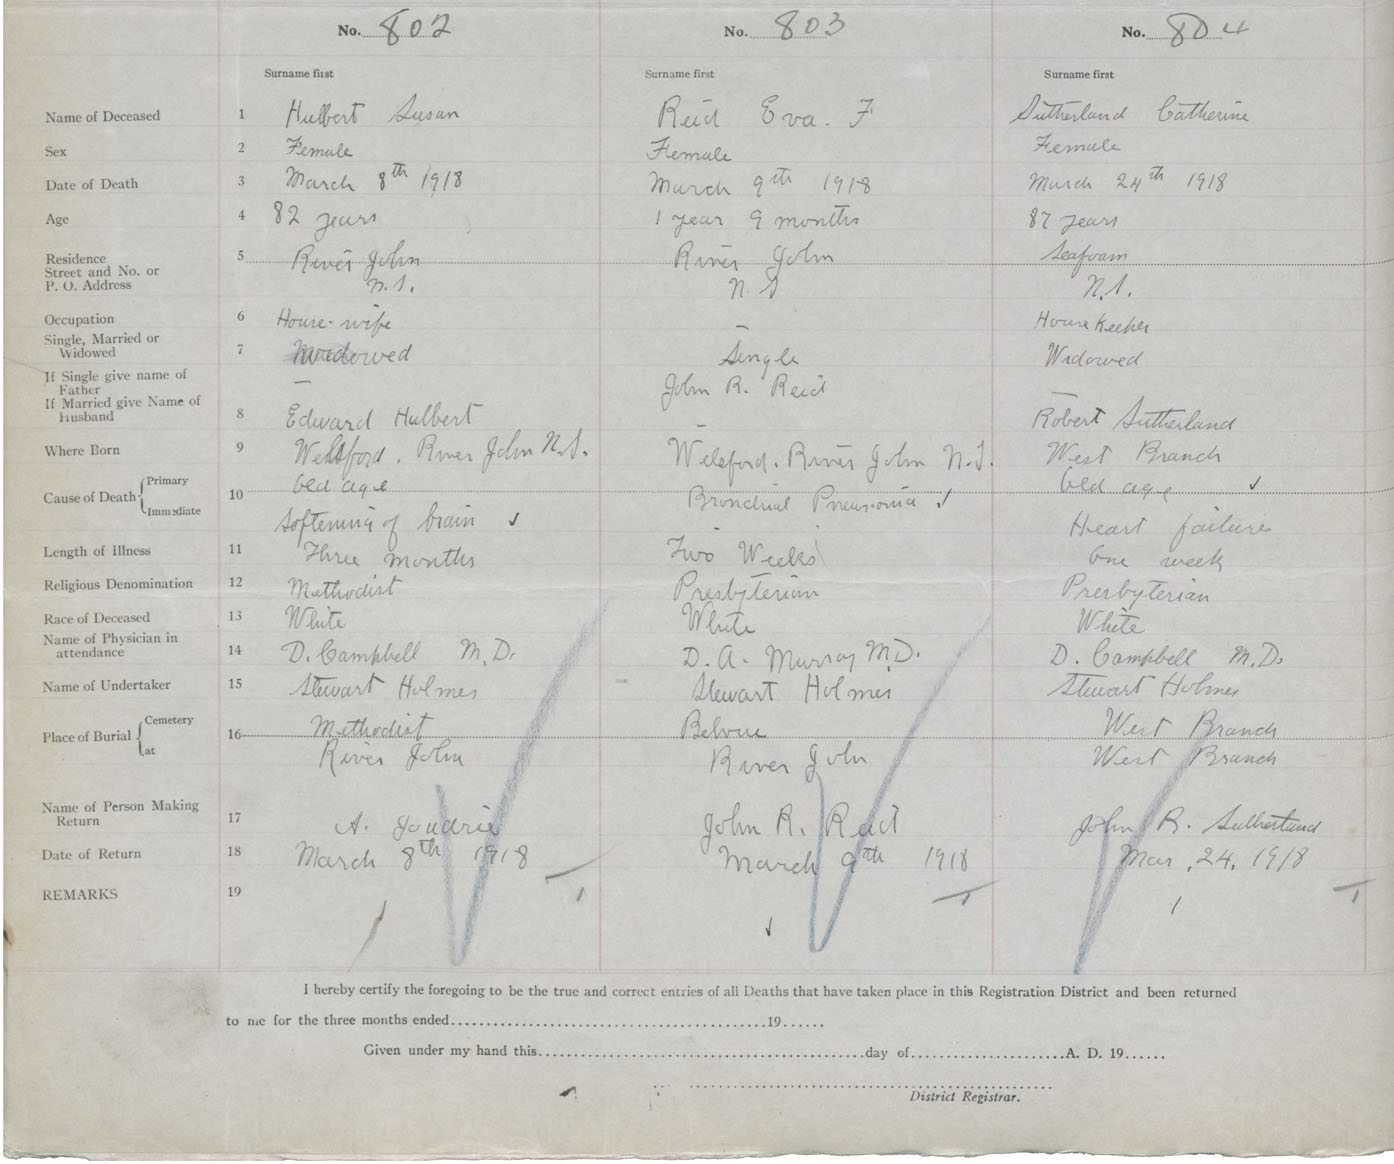 No. 802 No. 803 No. 804
Surname first Surname first Surname first
Name of Deceased 1 Hulbert Susan Reid Eva. F Sutherland Catherine
Sex 2 Female Female Female
Date of Death 3 March 8th 1918 March 9th 1918 March 24th 1918
Age 4 82 years 1 year 9 months 87 years
Residence 5 River John River John Seafoam
Street and No. or
P. O. Address N.S. N.S N.S.
Occupation 6 House-wife – House Keeper
Single, Married or
Widowed 7 Widowed Single Widowed
If Single give name of
Father – John R. Reid –
If Married give Name of
Husband 8 Edward Hulbert – Robert Sutherland
Where Born 9 Welsford. River John N.S. Welsford. River John N.S. West Branch
Cause of Death Primary 10 Old age Bronchial Pneumonia ✓ Old age ✓
Immediate Softening of brain ✓ Heart failure
Length of Illness 11 Three months Two Weeks One week
Religious Denomination 12 Methodist Presbyterian Presbyterian
Race of Deceased 13 White White White
Name of Physician in
attendance 14 D. Campbell M.D. D. A. Murray M.D. D. Campbell M.D.
Name of Undertaker 15 Stewart Holmes Stewart Holmes Stewart Holmes
Place of Burial Cemetery 16 Methodist Belvue West Branch
at River John River John West Branch
Name of Person Making
Return 17 A. Joudrie John R. Reid John R. Sutherland
Date of Return 18 March 8th 1918 March 9th 1918 Mar, 24, 1918
REMARKS 19
I hereby certify the foregoing to be the true and correct entries of all Deaths that have taken place in this Registration District and been returned
to me for the three months ended 19
Given under my hand this day of A. D. 19
District Registrar.